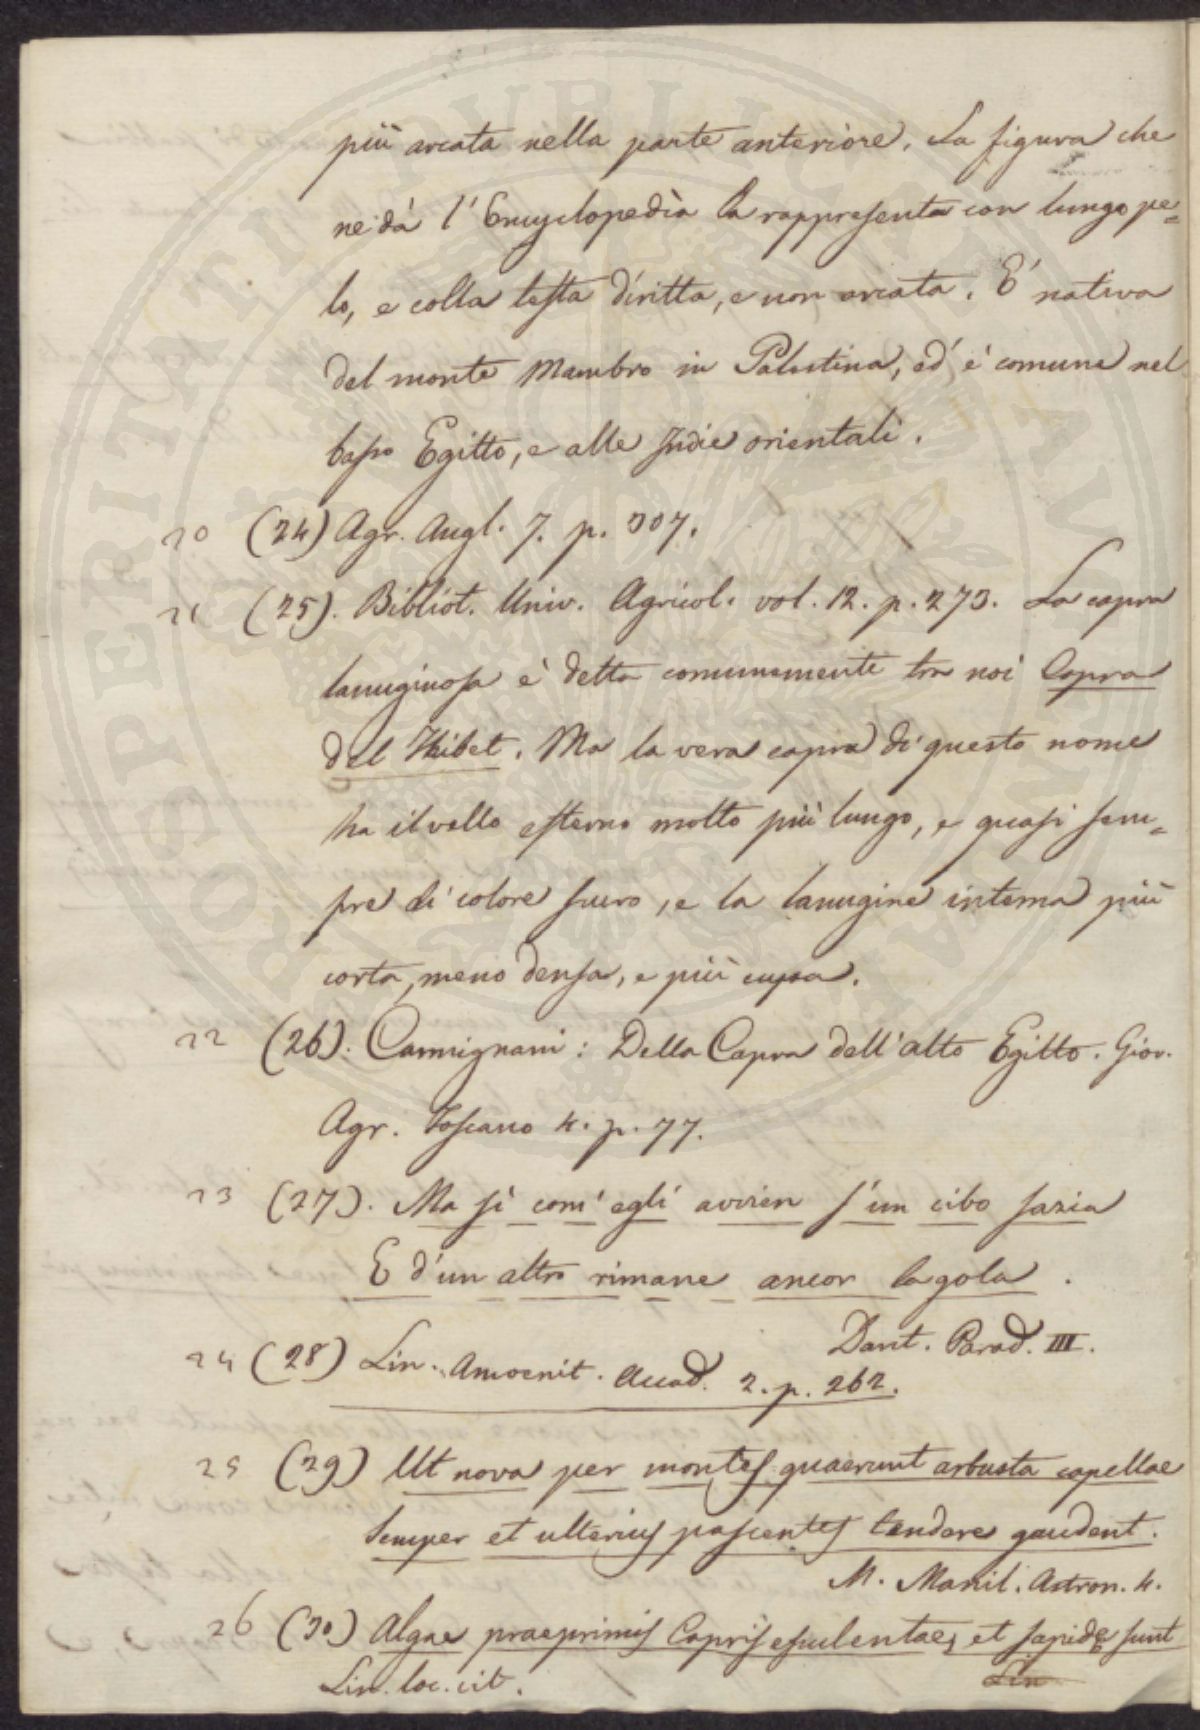 più arcata nella parte anteriore. La figura che
ne dà l'Encyclopedìa la rappresenta con lungo pe=
lo, e colla testa diritta, e non arcata. E' nativa
del monte Mambro in Palestina, ed è comune nel
basso Egitto, e alle Indie orientali.
20 (24) Agr. Angl. 7. p. 307.
21 (25). Bibliot. Univ. Agricol. vol. 12. p. 273. La capra
lanuginosa è detta comunemente tra noi Capra
del Thibet. Ma la vera capra di questo nome
ha il vello esterno molto più lungo, e quasi sem=
pre di colore scuro, e la lanugine interna più
corta, meno densa, e più cupa.
22 (26). Carmignani: Della Capra dell'alto Egitto. Gior.
Agr. Toscano 4. p. 77.
23 (27). Ma sì com' egli avvien s' un cibo sazia
E d'un altro rimane ancor la gola.
Dant. Parad. III.
24 (28) Lin. Amoenit. Accad. 2. p. 262.
25 (29) Ut nova per montes quaerunt arbusta capellae
Semper et ulterius pascentes tendere gaudent.
M. Manil. Astron. 4.
26 (30.) Algae praeprimis Capris esculentae, et sapidae sunt
Lin. loc. cit. Lin
PROSPERITATI PUBLICAE AUGENDAE